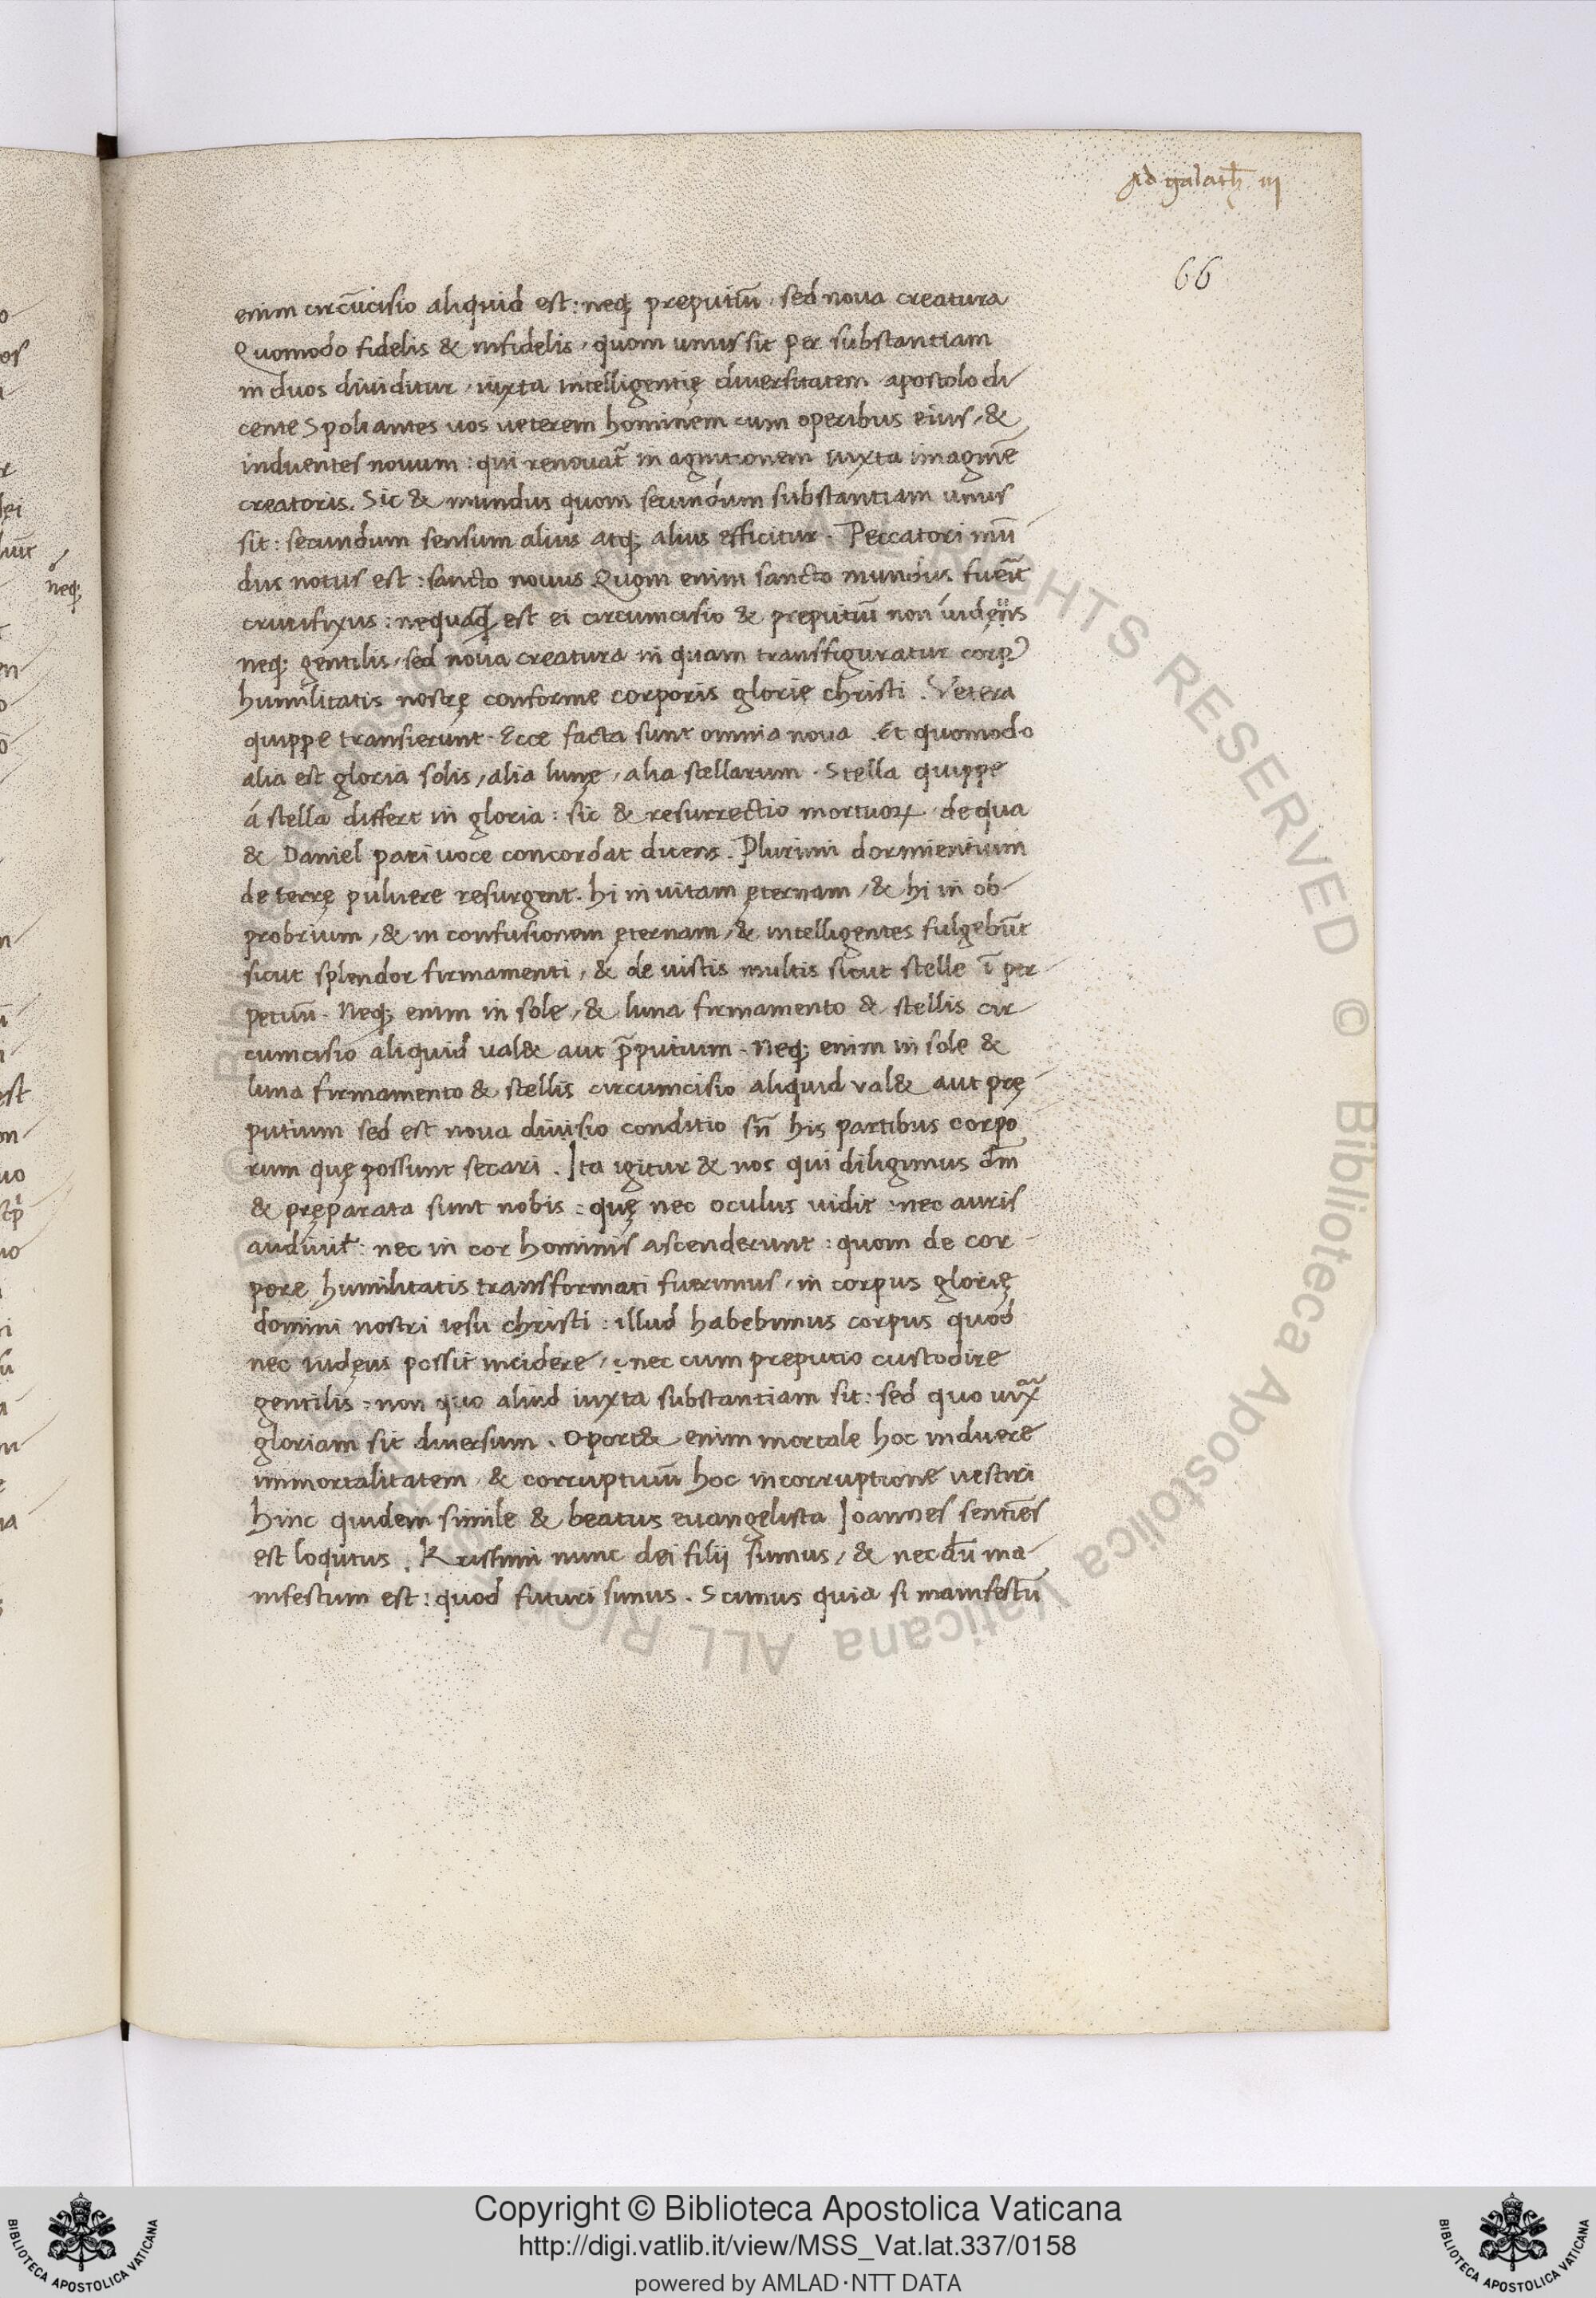 Ad galatħ iij
66
enim circūcisio aliquid est: neq; preputiū, sed noua creatura
Quomodo fidelis & infidelis, quom unus sit per substantiam
in duos diuiditur, iuxta intelligentię diuersitatem apostolo di
cente Spoliantes uos ueterem hominem cum operibus eius, &
induentes nouum: qui renouat̄ in agnitionem iuxta imaginē
creatoris. Sic & mundus quom secundum substantiam unus
sit: secundum sensum alius atq; alius efficitur. Peccatori mū
dus notus est: sancto nouus Quom enim sancto mundus fuerit
crucifixus: nequaq̄ est ei circumcisio & preputiū non iudęus
neq; gentilis, sed noua creatura in quam transfiguratur corp⁹
humilitatis nostrę conforme corporis glorię christi. Vetera
quippe transierunt. Ecce facta sunt omnia noua. Et quomodo
alia est gloria solis, alia lunę, alia stellarum. Stella quippe
á stella differt in gloria: sic & resurrectio mortuoꝝ. de qua
& Daniel pari uoce concordat dicens. Plurimi dormientium
de terrę puluere resurgent. hi in uitam ęternam, & hi in ob
probrium, & in confusionem ęternam, & intelligentes fulgebūt
sicut splendor firmamenti, & de iustis multis sicut stelle ī per
petuū. Neq; enim in sole, & luna firmamento & stellis cir
cumcisio aliquid ual& aut p̄putium. Neq; enim in sole &
luna firmamento & stellis circumcisio aliquid val& aut prę
putium sed est noua diuisio conditio sn̄ his partibus corpo
rum quę possunt secari. Ita igitur & nos qui diligimus dm̄
& pręparata sunt nobis: quę nec oculus uidit: nec auris
audiuit: nec in cor hominis ascenderunt: quom de cor
pore humilitatis transformati fuerimus, in corpus glorię
domini nostri iesu christi: illud habebimus corpus quod
nec iudęus possit incidere, nec cum preputio custodire
gentilis: non quo aliud iuxta substantiam sit: sed quo iuxͣ
gloriam sit diuersum. Oport& enim mortale hoc induere
immortalitatem, & corruptiuū hoc incorruptione uestiri
Hinc quidem simile & beatus euangelista Ioannes sentiēs
est loqutus. Krissimi nunc dei filij sumus, & necdū ma
nifestum est: quod futuri sumus. Scimus quia si manifestū
neq;
Copyright © Biblioteca Apostolica Vaticana
http://digi.vatlib.it/view/MSS_Vat.lat.337/0158
powered by AMLAD·NTT DATA